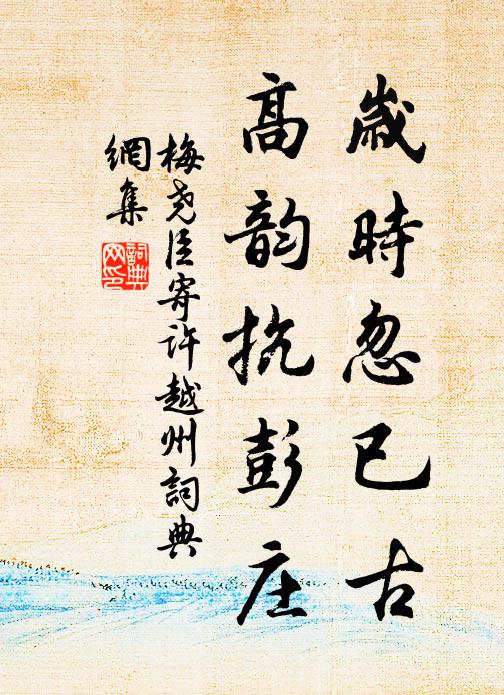 歲時忽已古
高韵抗彭庄
梅堯臣寄許越州詞典
網集
詞典網印